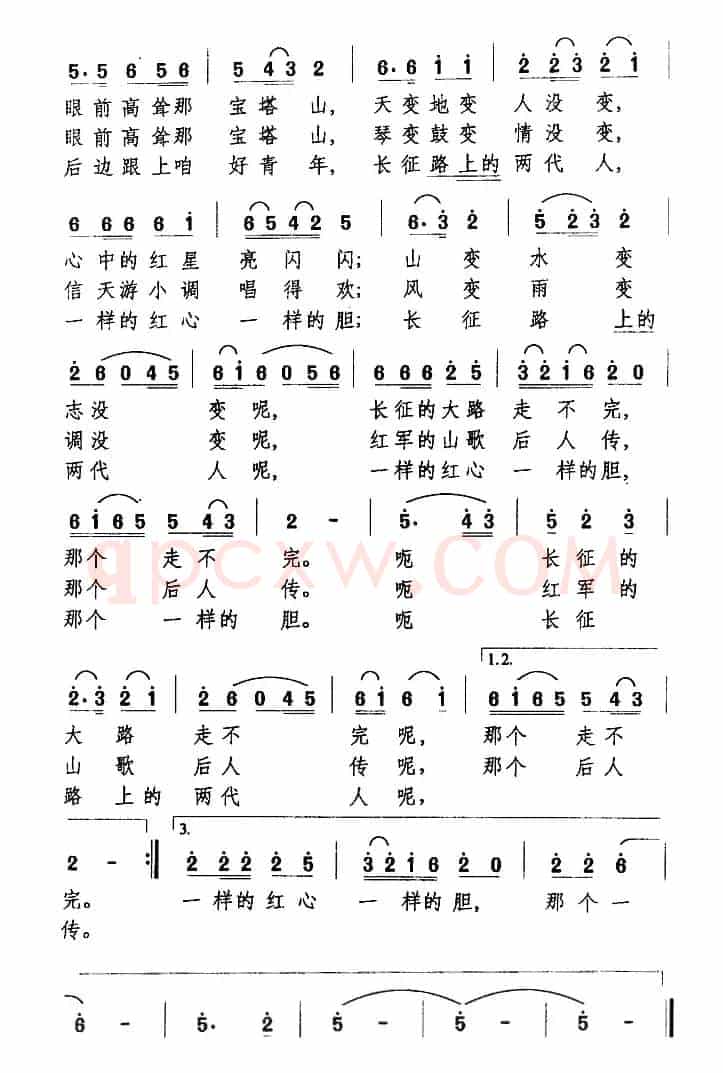 5.5 6 5 6 | 5 4 3 2 | 6.6 1 1 | 2 2 3 2 1
眼前高耸那 宝塔山, 天变地变 人没变,
眼前高耸那 宝塔山, 琴变鼓变 情没变,
后边跟上咱 好青年, 长征路上的 两代人,
6 6 6 6 1 | 6 5 4 2 5 | 6. 3 2 | 5 2 3 2
心中的红星 亮闪闪; 山变 水变
信天游小调 唱得欢; 风变 雨变
一样的红心 一样的胆; 长征 路上的
2 6 0 4 5 | 6 1 6 0 5 6 | 6 6 6 2 5 | 3 2 1 6 2 0
志没 变呢, 长征的大路 走不完,
调没 变呢, 红军的山歌 后人传,
两代 人呢, 一样的红心 一样的胆,
6 1 6 5 5 4 3 | 2 - | 5. 4 3 | 5 2 3
那个走不 完。 呃 长征的
那个后人 传。 呃 红军的
那个一样的 胆。 呃 长征
qpcxw.COM
1.2.
2. 3 2 1 | 2 6 0 4 5 | 6 1 6 1 | 6 1 6 5 5 4 3
大路 走不 完呢, 那个走不
山歌 后人 传呢, 那个后人
路上的 两代 人呢,
3.
2 - :‖ 2 2 2 2 5 | 3 2 1 6 2 0 | 2 2 6
完。 一样的红心 一样的胆, 那个一
传。
6 - | 5. 2 | 5 - | 5 - | 5 - ‖